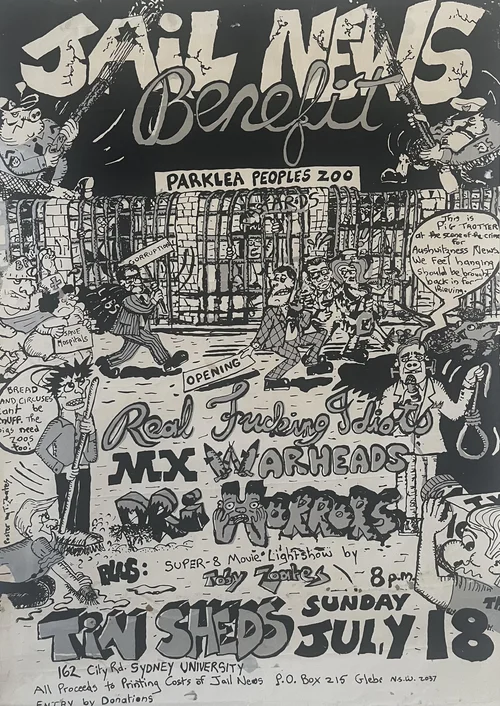 JAIL NEWS
Benefit
PARKLEA PEOPLES ZOO
YARDS
This is
PIG TROTTER
at the scene of the crime
for
Aushwitzness News.
We Feel hanging
should be brought
back in for
thieving.
CORRUPTION
SMOF
Hospitals
OPENING
BREAD
AND CIRCUSES
cant be
ENUFF. The
pigs need
ZOOS
too!
Real Fucking Idiots
MX WARHEADS
DRi HORRORS
PLUS:
SUPER-8 Movie Lightshow by
Toby Zoates
8 p.m.
TiN SHEDS
SUNDAY
JULY 18TH
162 City Rd. SYDNEY UNIVERSITY
All Proceeds to Printing Costs of Jail News P.O. Box 215 Glebe N.S.W. 2037
ENTRY by Donations